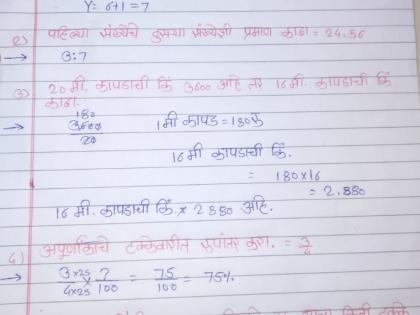 Y = 6+1 = 7
२) पहिल्या संख्येचे दुसऱ्या संख्येशी प्रमाण काढा = 24,56
→ 3:7
३) 20 मी. कापडाची किं 3600 आहे तर 16 मी. कापडाची किं
काढा.
180
→ 3600 1 मी कापड = 180 रु
20
16 मी कापडाची किं.
= 180×16
= 2,880
16 मी. कापडाची किं. ₹ 2880 आहे.
4) अपूर्णांकाचे टक्केवारीत रूपांतर करा. = 3/4
→ 3×25/4×25 ?/100 = 75/100 = 75%